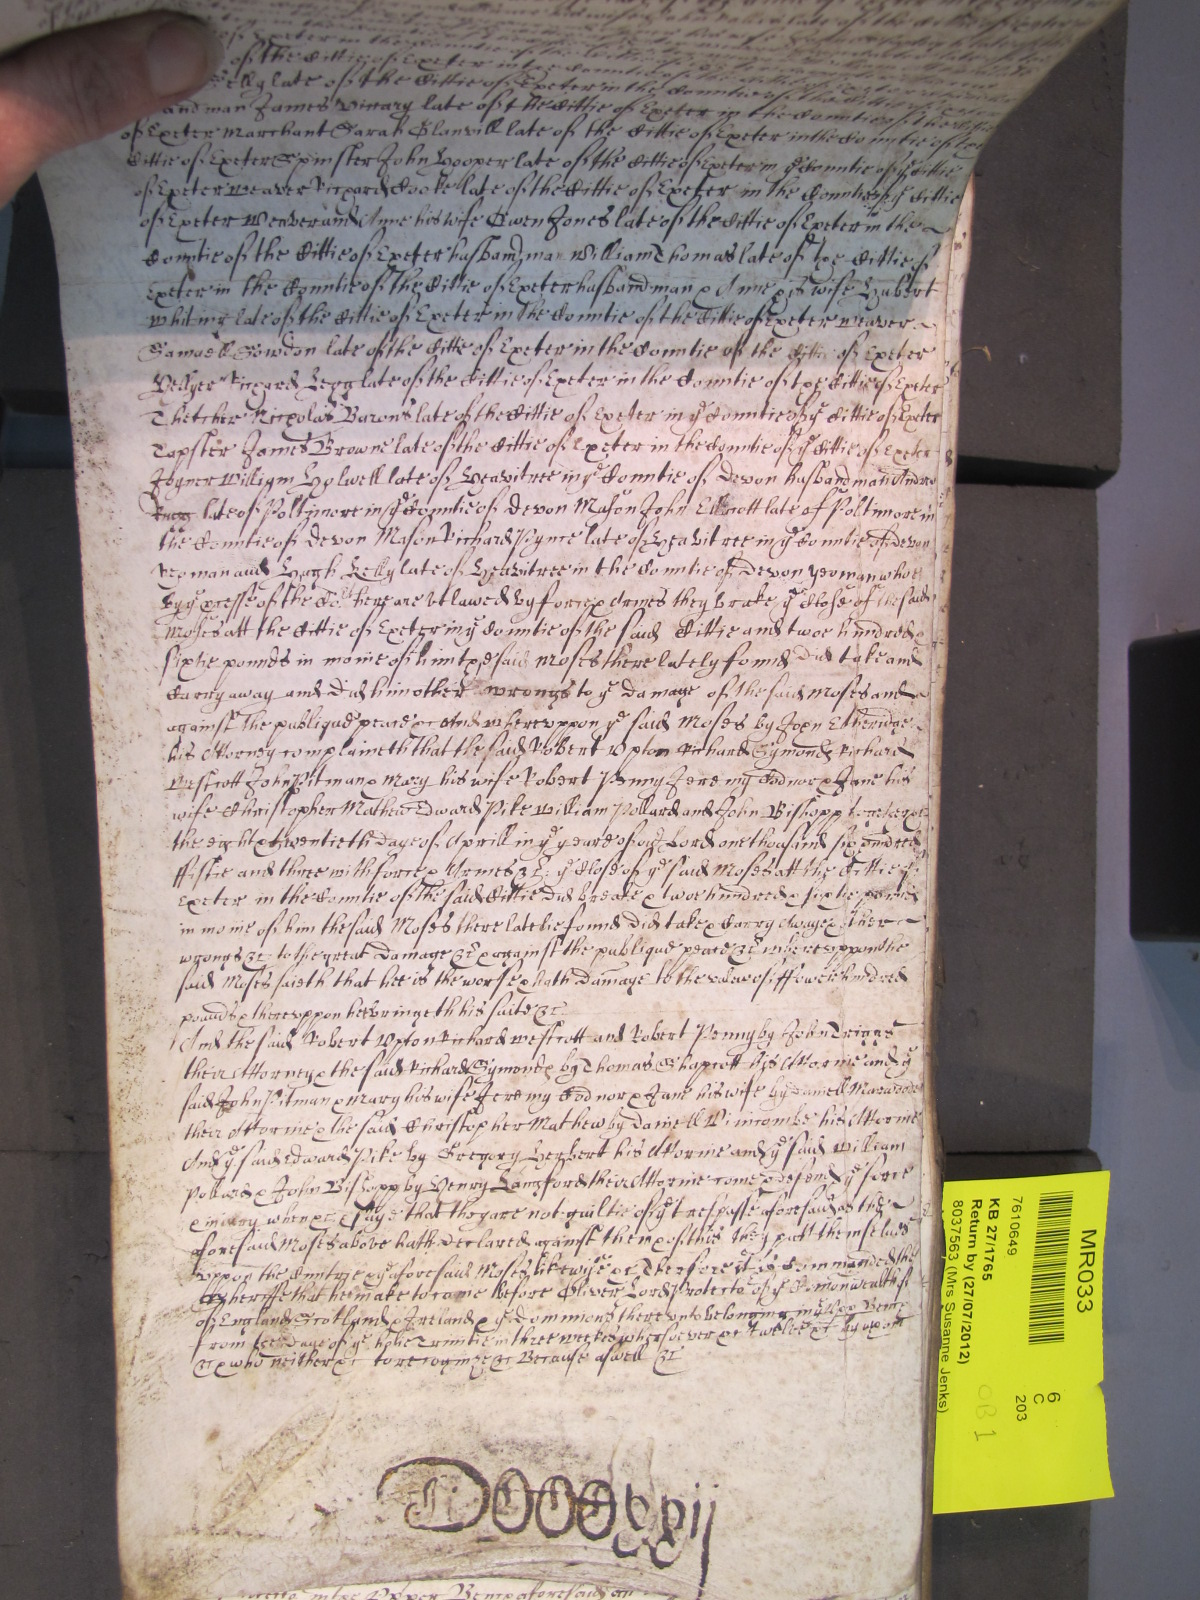 of the Cittie of Exeter in the Countie of
late of the Cittie of Exeter in the Countie of the Cittie
andman James Vinary late of the Cittie of Exeter in the Countie of the Cittie
of Exeter Marchant Sarah Glanvill late of the Cittie of Exeter in the Countie of the
Cittie of Exeter Spinster John Hooper late of the Cittie of Exeter in ye Countie of ye Cittie
of Exeter Weaver Richard Cooke late of the Cittie of Exeter in the Countie of ye Cittie
of Exeter Weaver and Anne his wife Owen Jones late of the Cittie of Exeter in the
Countie of the Cittie of Exeter husbandman William Thomas late of the Cittie of
Exeter in the Countie of the Cittie of Exeter husbandman & Anne his wife Hubert
Whiting late of the Cittie of Exeter in the Countie of the Cittie of Exeter Weaver
Samuell Sowdon late of the Cittie of Exeter in the Countie of the Cittie of Exeter
Hellyer Richard Legg late of the Cittie of Exeter in the Countie of the Cittie of Exeter
Thetcher Nicholas Barons late of the Cittie of Exeter in ye Countie of ye Cittie of Exeter
Tapster James Browne late of the Cittie of Exeter in the Countie of ye Cittie of Exeter
Joyner William Holwell late of Heavitree in ye Countie of Devon husbandman Andrew
late of Poltimore in ye Countie of Devon Mason John Ellicott late of Poltimore in
the Countie of Devon Mason Richard Pyne late of Heavitree in ye Countie of Devon
Yeoman and Hugh Kelly late of Heavitree in the Countie of Devon yeoman whoe
by ye processe of the Cort here are utlawed by force & Armes they brake ye Close of the said
Moses att the Cittie of Exeter in ye Countie of the said Cittie and twoe hundred &
sixtie pounds in monie of him the said Moses there lately found did take and
Carry away and did him other wrongs to ye damage of the said Moses and
against the publique peace &c And whereuppon ye said Moses by John Etheridge
his Attorney complaineth that the said Robert Upton Richard Symonds Richard
Westcott John Pitman & Mary his wife Robert Penny Jeremy Codnor & Jane his
wife Christopher Mathew Edward Pike William Pollard and John Bishopp heretofore
the eight & twentieth daye of Aprill in ye yeare of our Lord one thousand six hundred
fiftie and three with force & Armes &c ye Close of ye said Moses att the Cittie of
Exeter in the Countie of the said Cittie did breake & twoe hundred & sixtie pounds
in monie of him the said Moses there latelie found did take & Carry Awaye & other
wrongs &c to the great damage &c & against the publique peace &c whereuppon the
said Moses saieth that hee is the worse & hath damage to the value of ffower hundred
pounds & thereuppon hee bringeth his suite &c
And the said Robert Upton Richard Westcott and Robert Penny by John Triggs
their Attorney & the said Richard Symonds by Thomas Shapcott his Attornie and ye
said John Pitman & Mary his wife Jeremy Codnor & Jane his wife by Daniell
their Attornie & the said Christopher Mathew by Daniell Vinicombe his Attornie
And ye said Edward Pike by Gregory Herbert his Attornie and ye said William
Pollard & John Bishopp by Henry Langford their Attornie come & defend ye force
& iniury when &c & saye that they are not guiltie of ye trespasse aforesaid as the
aforesaid Moses above hath declared against them & of this they putt themselves
uppon the Cuntrye & ye aforesaid Moses likewise &c Therefore it is Commanded the
Sheriffe that hee make to come before Oliver Lord Protector of ye Comonwealth of
of England Scotland & Ireland & ye dominions thereunto belonging in ye Upper Bench
from the daye of ye holie Trinitie in three weekes whersoever &c twelve &c by whom
&c & who neither &c to recognize &c Because aswell &c
in the Upper Bench aforesaid an
MR033
7610649
KB 27/1765
Return by (27/07/2012)
8037563 (Mrs Susanne Jenks)
6
C
203
OB 1